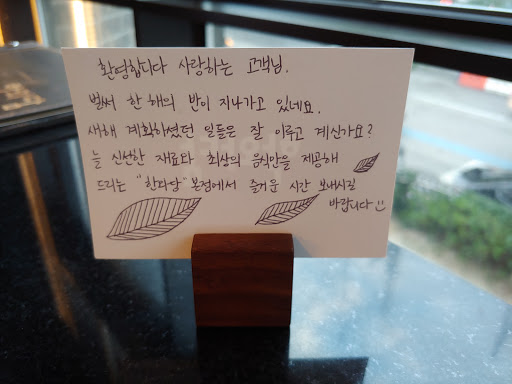 환영합니다 사랑하는 고객님.
벌써 한 해의 반이 지나가고 있네요.
새해 계획하셨던 일들은 잘 이루고 계신가요?
늘 신선한 재료와 최상의 음식만을 제공해
드리는 "한다담" 본점에서 즐거운 시간 보내시길
바랍니다